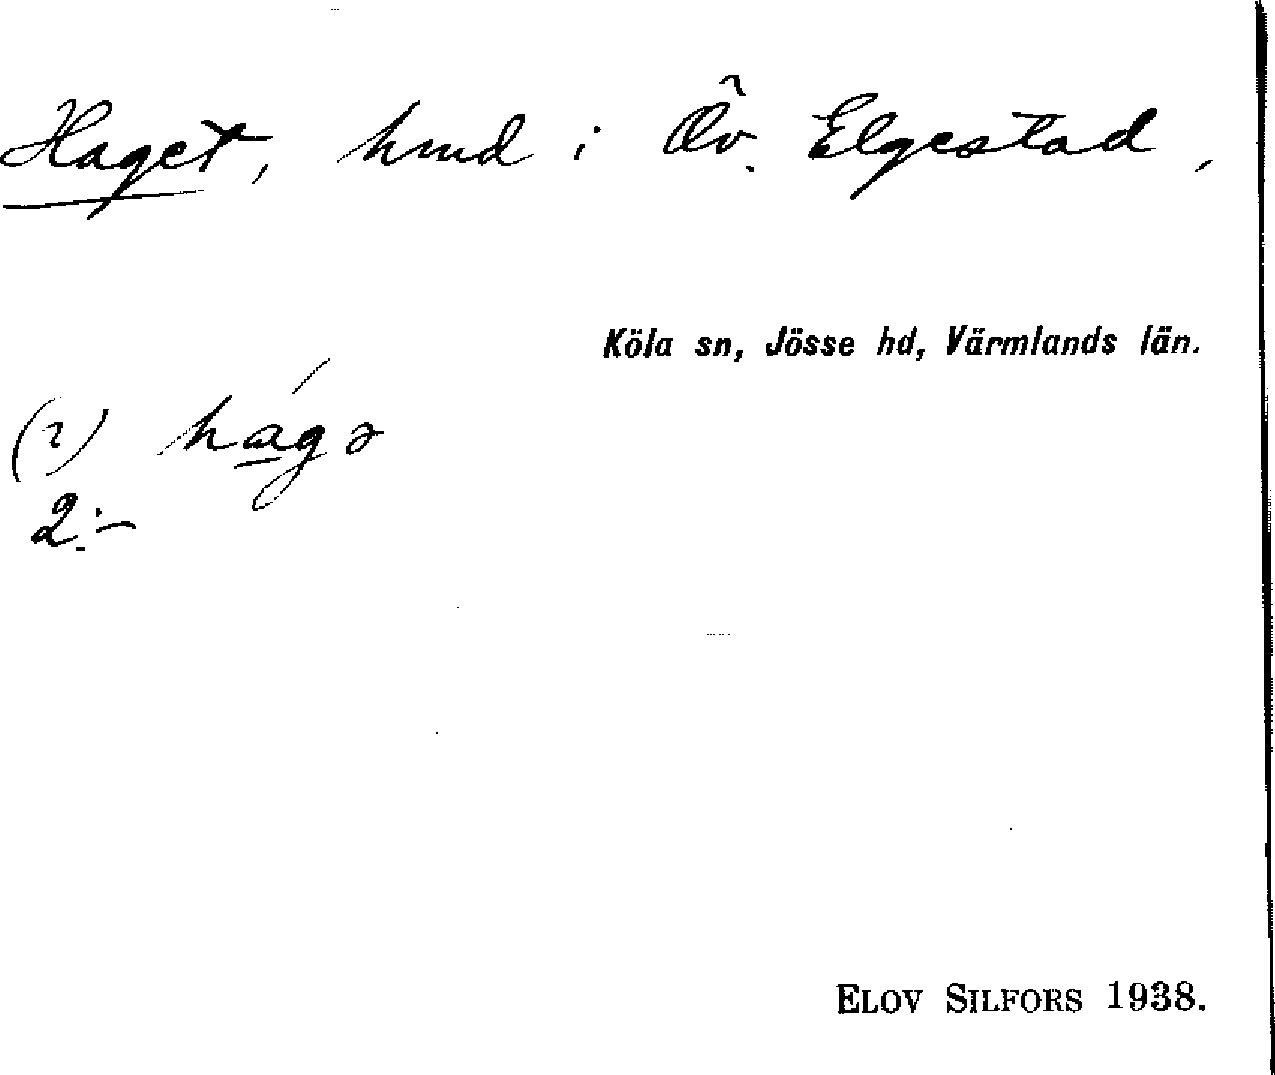 Haget, hmd i Öv. Elgestad,
Köla sn, Jösse hd, Värmlands län.
(2) hágə
2:-
ELOV SILFORS 1938.